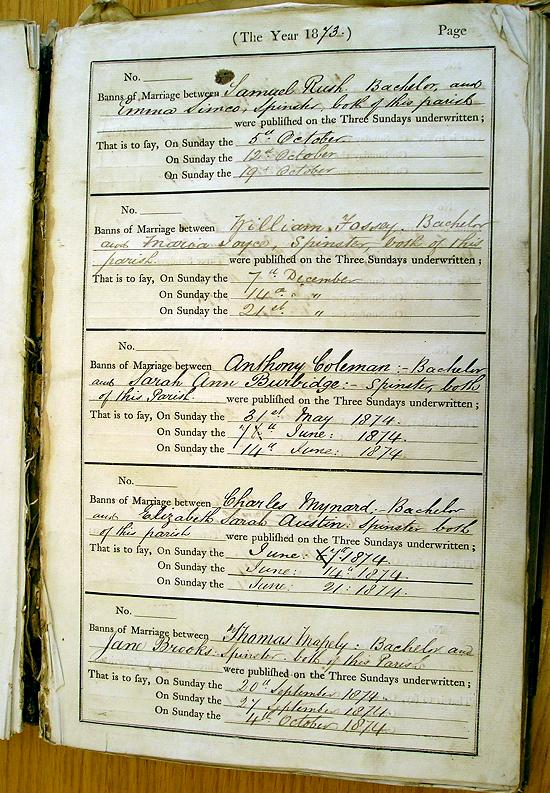 (The Year 1873.) Page
No.
Banns of Marriage between Samuel Rush Bachelor, and
Emma Simco, Spinster, both of this parish
were publiſhed on the Three Sundays underwritten;
That is to ſay, On Sunday the 5th October
On Sunday the 12th October
On Sunday the 19th October
No.
Banns of Marriage between William Fossey. Bachelor
and Joyce, Spinster, both of this
parish. were publiſhed on the Three Sundays underwritten;
That is to ſay, On Sunday the 7th December
On Sunday the 14th "
On Sunday the 21st "
No.
Banns of Marriage between Anthony Coleman:- Bachelor
and Sarah Ann Burbidge:- Spinster, both
of this Parish. were publiſhed on the Three Sundays underwritten;
That is to ſay, On Sunday the 31st May 1874.
On Sunday the 7th June: 1874.
On Sunday the 14th June: 1874.
No.
Banns of Marriage between Charles Mynard. Bachelor
and Elizabeth Sarah Austin: Spinster both
of this parish were publiſhed on the Three Sundays underwritten;
That is to ſay, On Sunday the June: 7th 1874.
On Sunday the June: 14th 1874.
On Sunday the June: 21: 1874.
No.
Banns of Marriage between Thomas Mapely. Bachelor and
Jane Brooks. Spinster. both of this Parish.
were publiſhed on the Three Sundays underwritten;
That is to ſay, On Sunday the 20th September 1874.
On Sunday the 27 September 1874.
On Sunday the 4th October 1874